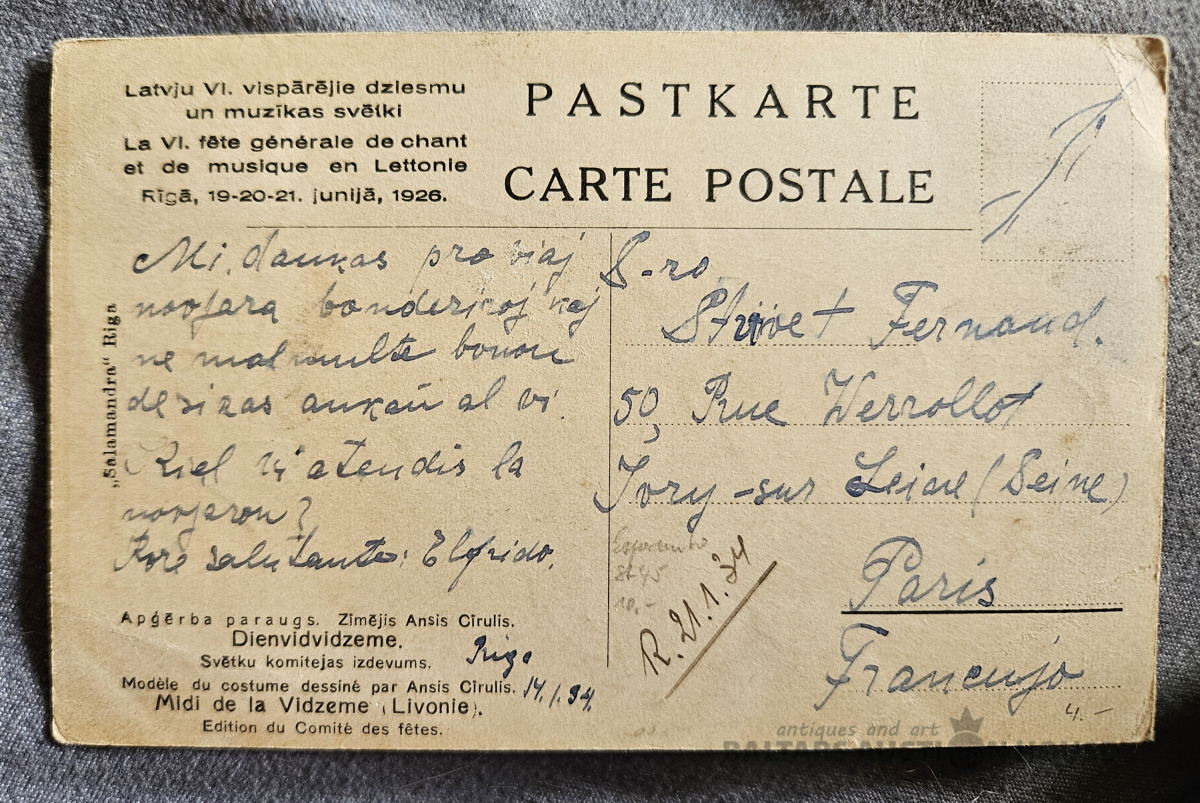 Latvju VI. vispārējie dziesmu
un muzīkas svētki
La VI. fête générale de chant
et de musique en Lettonie
Rīgā, 19-20-21. junijā, 1926.
PASTKARTE
CARTE POSTALE
„Salamandra“ Riga
Mi dankas pro viaj
novjara bondeziroj kaj
ne malmulte bonon
deziras ankaŭ al vi.
Kiel vi atendis la
novjaron?
Kore salutante: Elfrido.
Apģērba paraugs. Zīmējis Ansis Cīrulis.
Dienvidvidzeme.
Svētku komitejas izdevums.
Modèle du costume dessiné par Ansis Cīrulis.
Midi de la Vidzeme (Livonie).
Edition du Comité des fêtes.
Riga
14.1.34.
S-ro
Fernand.
50, Rue Verrollot
Ivry-sur Seine (Seine)
Paris
Francujo
Esperanto
10.-
R. 21.1.34
4.-
antiques and art